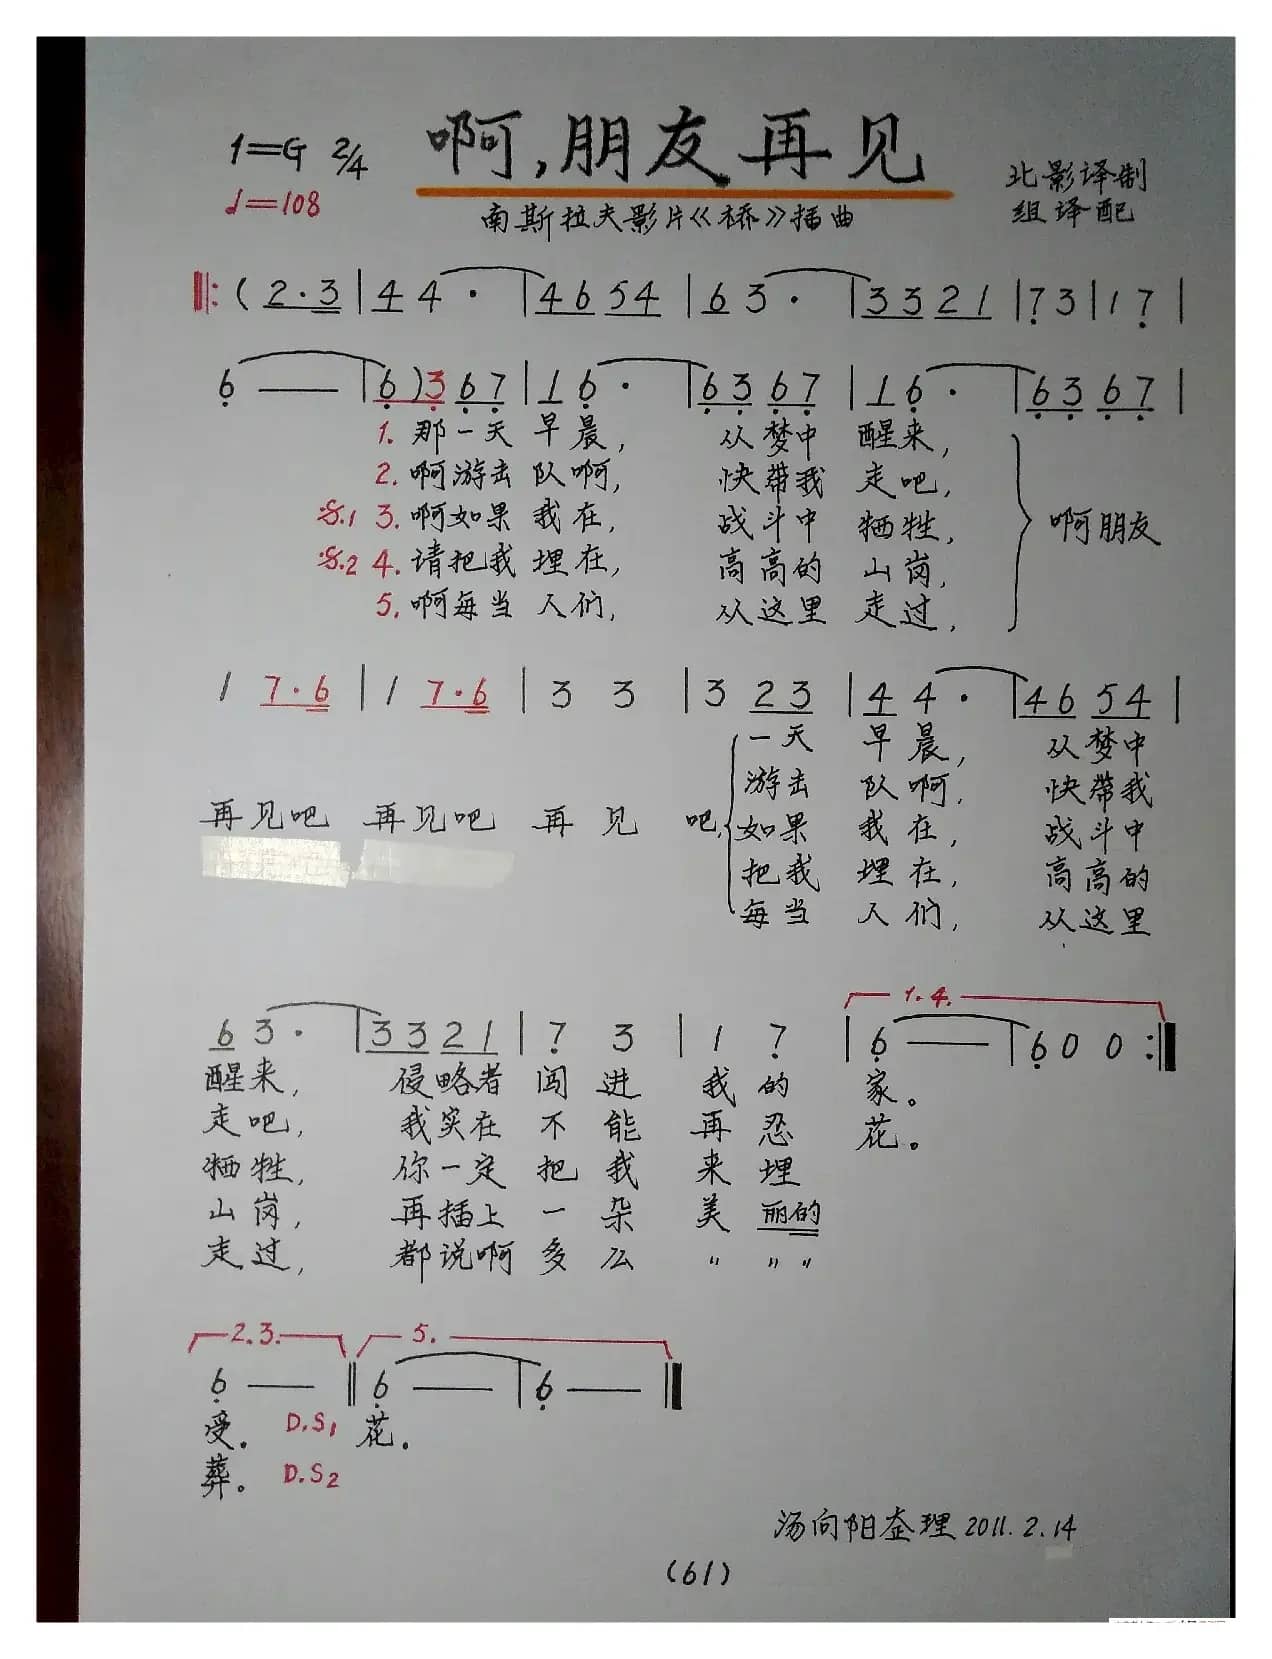 啊,朋友再见
1=G 2/4
♩=108
南斯拉夫影片《桥》插曲
北影译制
组译配
‖: ( 2·3 | 4 4 · | 4 6 5 4 | 6 3 · | 3 3 2 1 | 7 3 | 1 7 |
6 — | 6 ) 3 6 7 | 1 6 · | 6 3 6 7 | 1 6 · | 6 3 6 7 |
1. 那一天 早晨, 从梦中 醒来,
2. 啊游击 队啊, 快带我 走吧,
𝄋.1 3. 啊如果 我在, 战斗中 牺牲, 啊朋友
𝄋.2 4. 请把我 埋在, 高高的 山岗,
5. 啊每当 人们, 从这里 走过,
1 7·6 | 1 7·6 | 3 3 | 3 2 3 | 4 4 · | 4 6 5 4 |
一天 早晨, 从梦中
游击 队啊, 快带我
再见吧 再见吧 再见 吧, 如果 我在, 战斗中
把我 埋在, 高高的
每当 人们, 从这里
1.4.
6 3 · | 3 3 2 1 | 7 3 | 1 7 | 6 — | 6 0 0 :‖
醒来, 侵略者 闯进 我的 家。
走吧, 我实在 不能 再忍 花。
牺牲, 你一定 把我 来埋
山岗, 再插上 一朵 美丽的
走过, 都说啊 多么 〃 〃 〃
2.3. 5.
6 — ‖ 6 — | 6 — ‖
受。 D.S1 花。
葬。 D.S2
汤向阳整理 2011.2.14
(61)